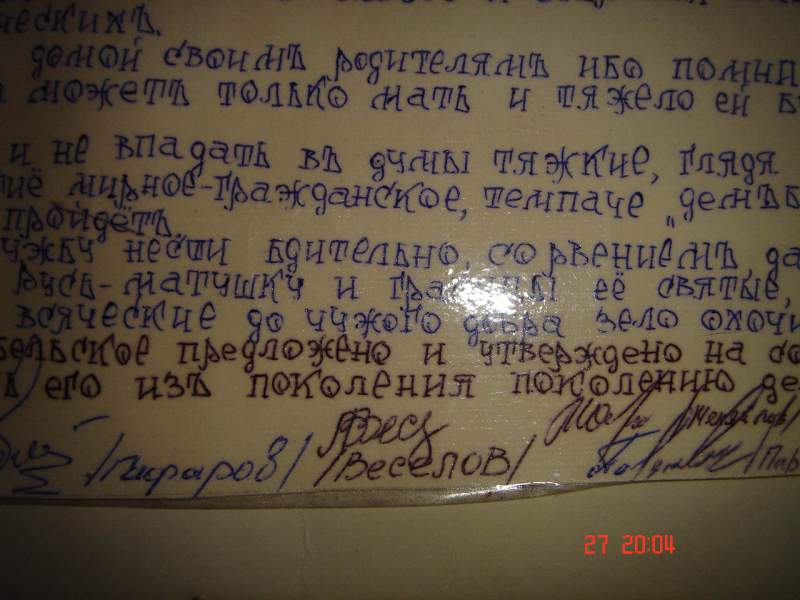 ческихъ.
домой своимъ родителямъ ибо помни
можетъ только мать и тяжело ей б
и не впадать въ думы тяжкие, глядя
тиё мирное-гражданское, темпаче „демъб
пройдётъ.
ужбу нести бдительно, со рвениемъ, да
Русь-матушку и границы её святые,
всяческие до чужого добра зело охочи
бельское предложено и утверждено на со
его изъ поколения поколению де
/Веселов/
/Пар
27 20:04